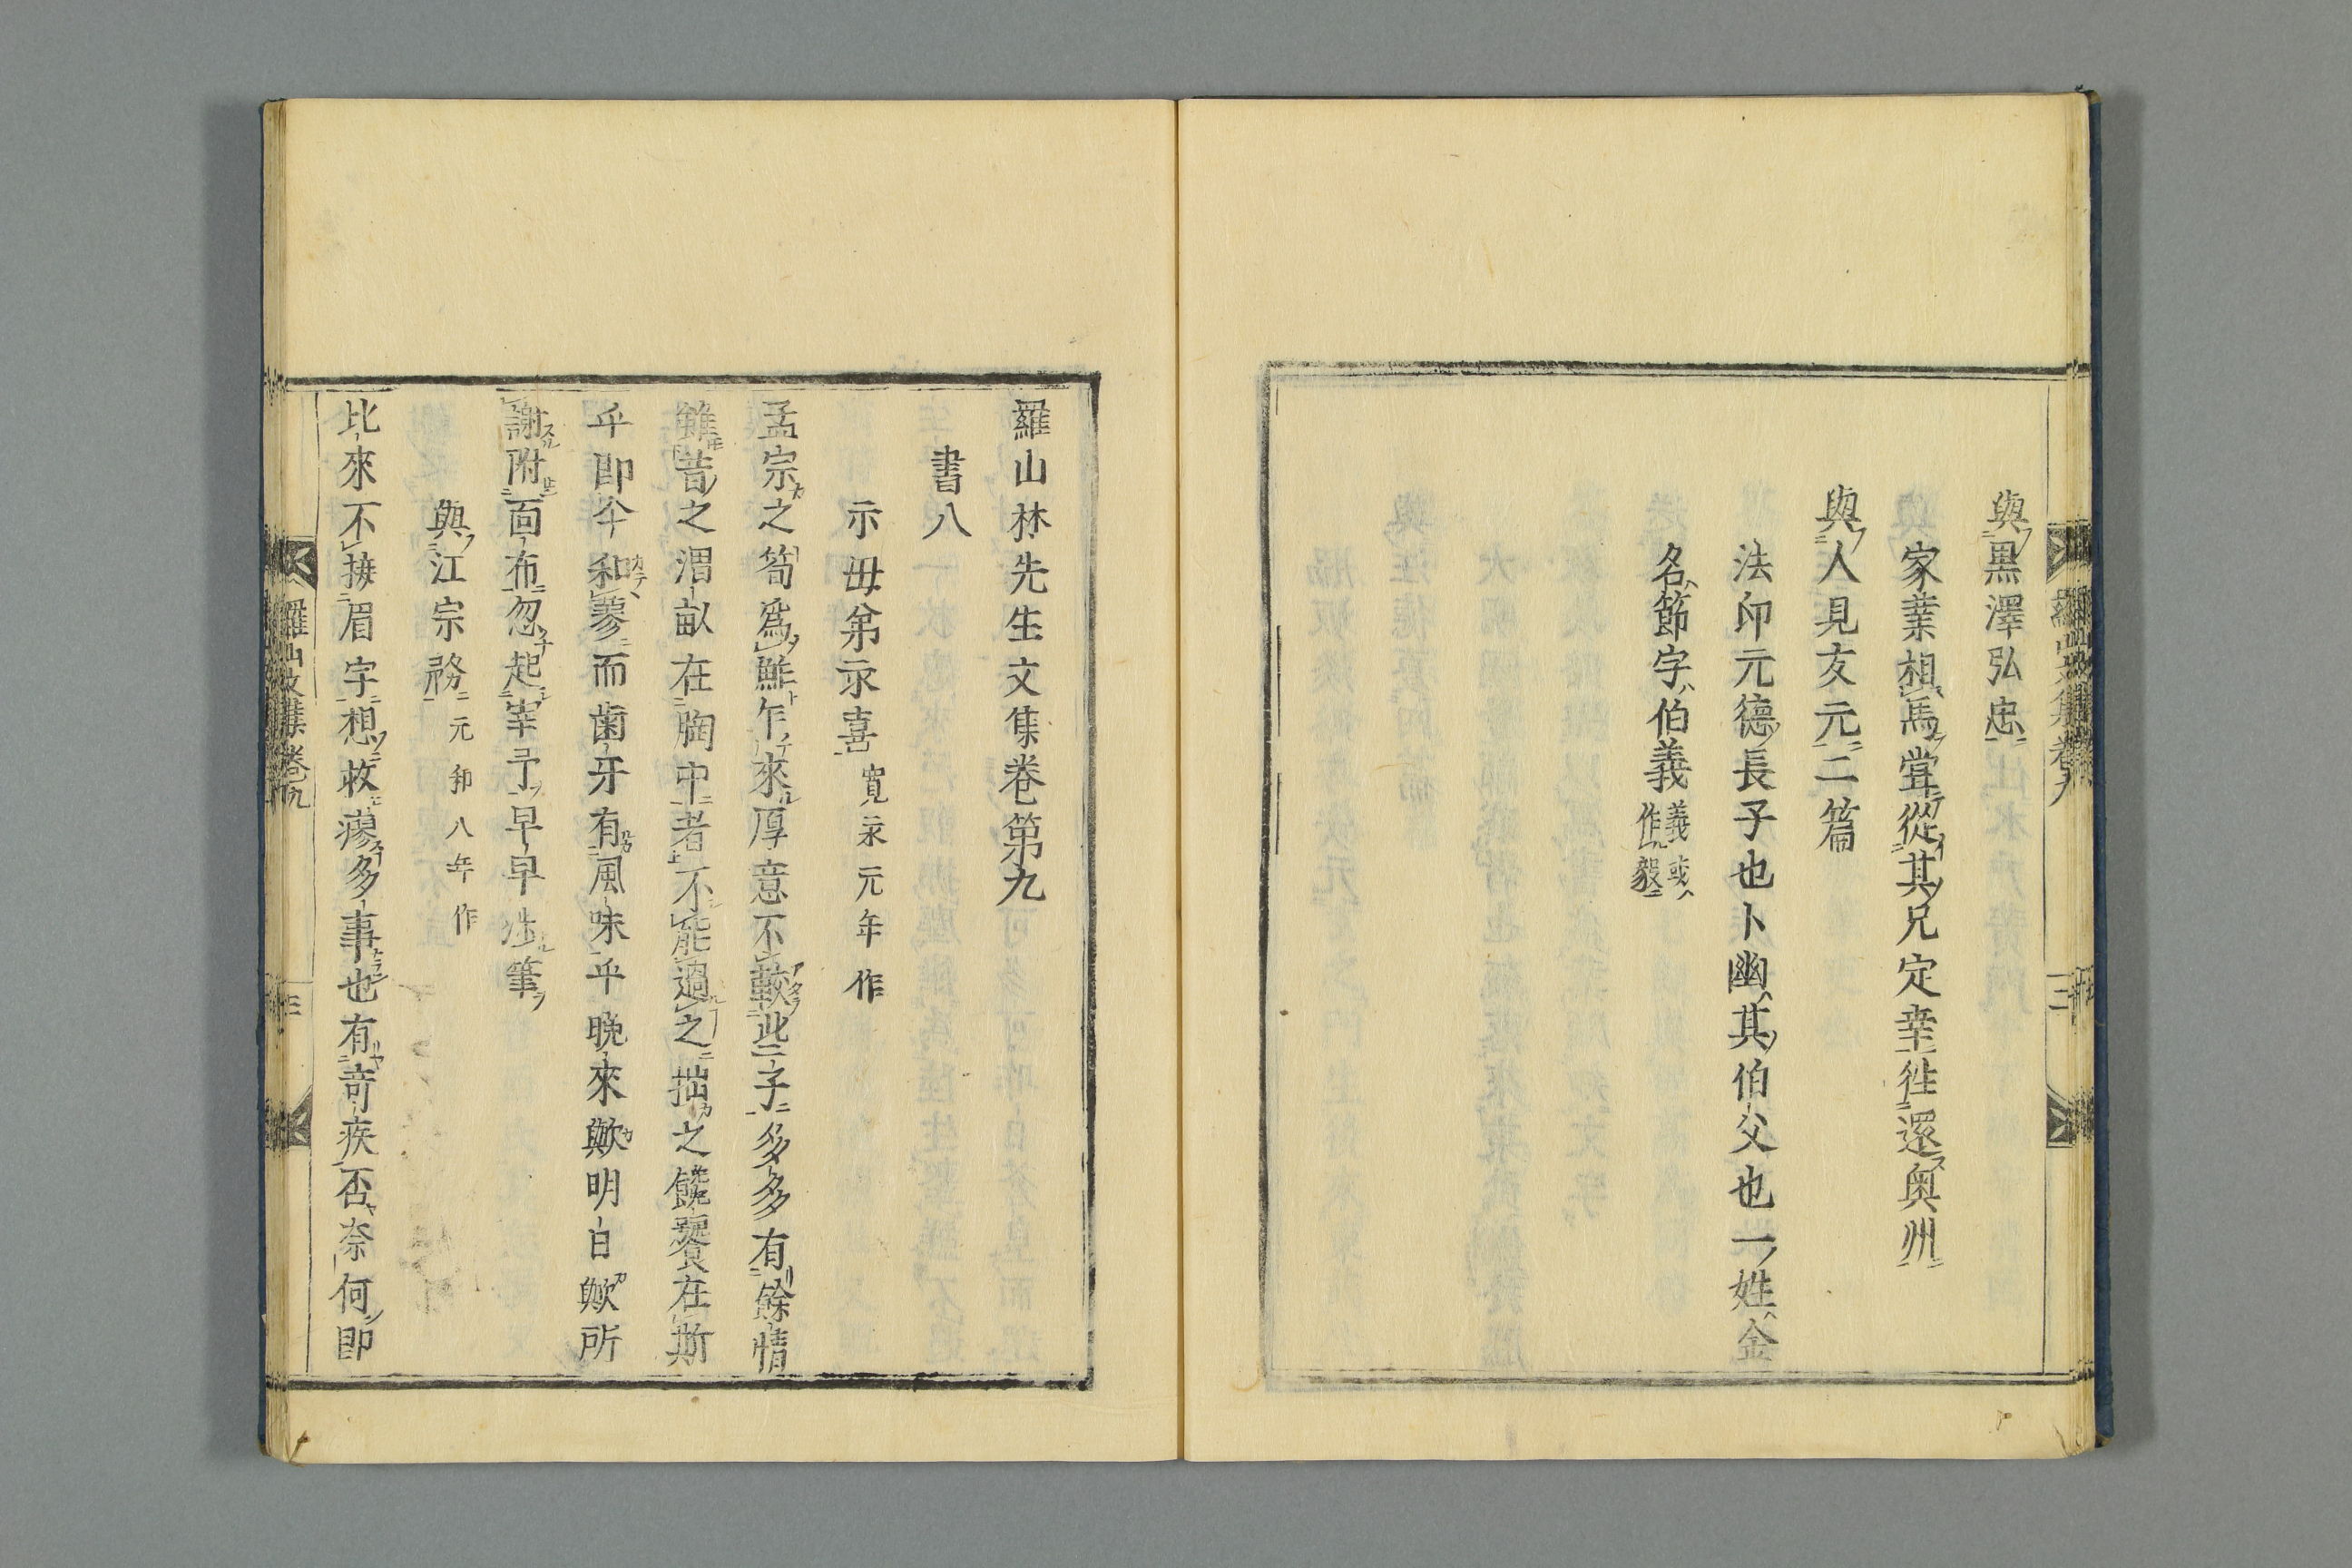 與黒澤弘忠
家業相馬嘗從其兄定幸徃還奥州
與人見友元二篇
法印元德長子也卜幽其伯父也一姓金
名節字伯義義或作毅
羅山林先生文集卷第九
書八
示毋弟永喜寛永元年作
孟宗之筍爲鮓乍來厚意不較此二子多多有餘情
雖昔之渭畝在胸中者不能過之拙之饞饕在斯
乎即今和蓼而歯牙有風味乎晩來歟明白歟所
謝附面布忽起宰予早早泚筆
與江宗務元和八年作
比來不接眉字想救瘳多事也有苛疾否奈何即
羅山文集卷九
三